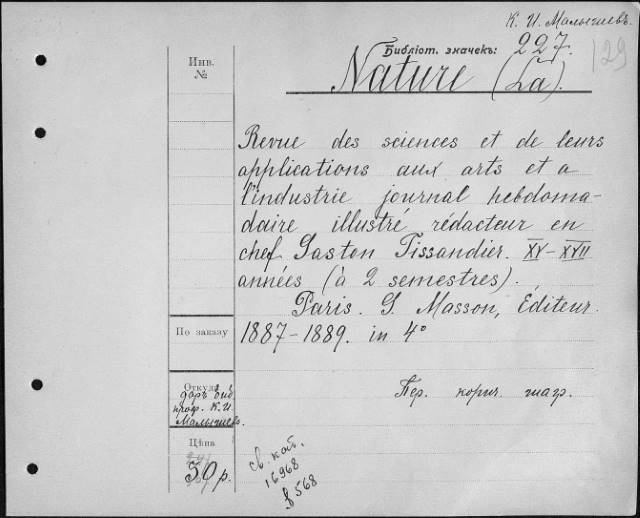 К. И. Малышевъ.
Библіот. значекъ: 227.
129
Nature (La).
Инв.
№
Revue des sciences et de leurs
applications aux arts et a
l'industrie journal hebdoma-
daire illustré rédacteur en
chef Gaston Tissandier. XV-XVII
années (à 2 semestres).
Paris. G. Masson, Éditeur.
По заказу
1887-1889. in 4°
Откуда
даръ
проф. К. И.
Малышевъ.
Пер. корич. шагр.
Цѣна
50 р.
св. каб.
16968
568